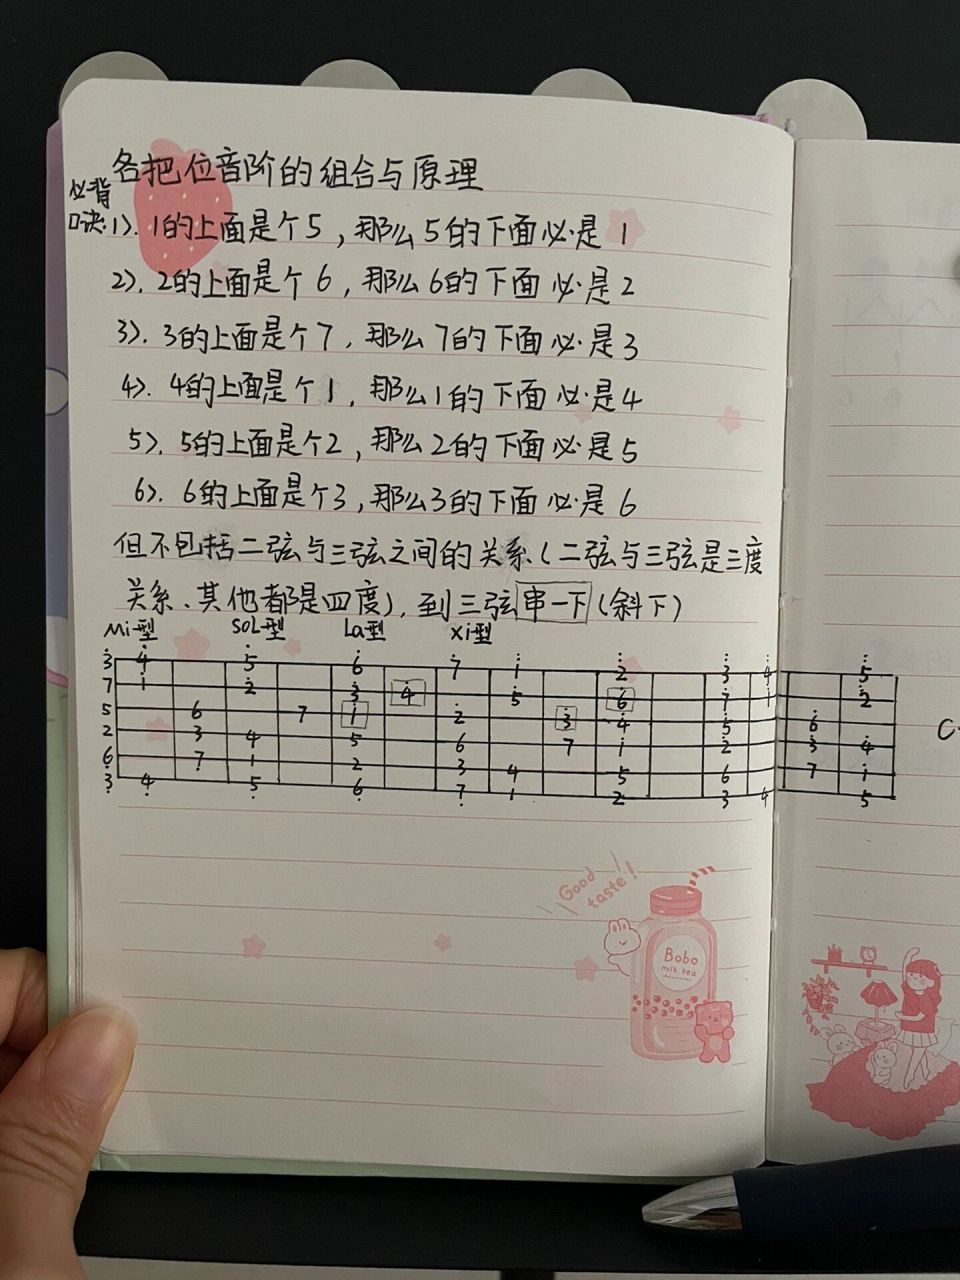 各把位音阶的组合与原理
必背
口诀:1). 1的上面是个5,那么5的下面必是1
2). 2的上面是个6,那么6的下面必是2
3). 3的上面是个7,那么7的下面必是3
4). 4的上面是个1,那么1的下面必是4
5). 5的上面是个2,那么2的下面必是5
6). 6的上面是个3,那么3的下面必是6
但不包括二弦与三弦之间的关系(二弦与三弦是三度
关系、其他都是四度),到三弦串一下(斜下)
Mi型 SOL型 La型 Xi型
3 4 5 6 7 1 2 3 4 5
7 1 2 3 4 5 6 7 1 2
5 6 7 1 2 3 4 5 6
2 3 4 5 6 7 1 2 3 4
6 7 1 2 3 4 5 6 7 1
3 4 5 6 7 1 2 3 4 5
Good
taste!
Bobo
milk tea